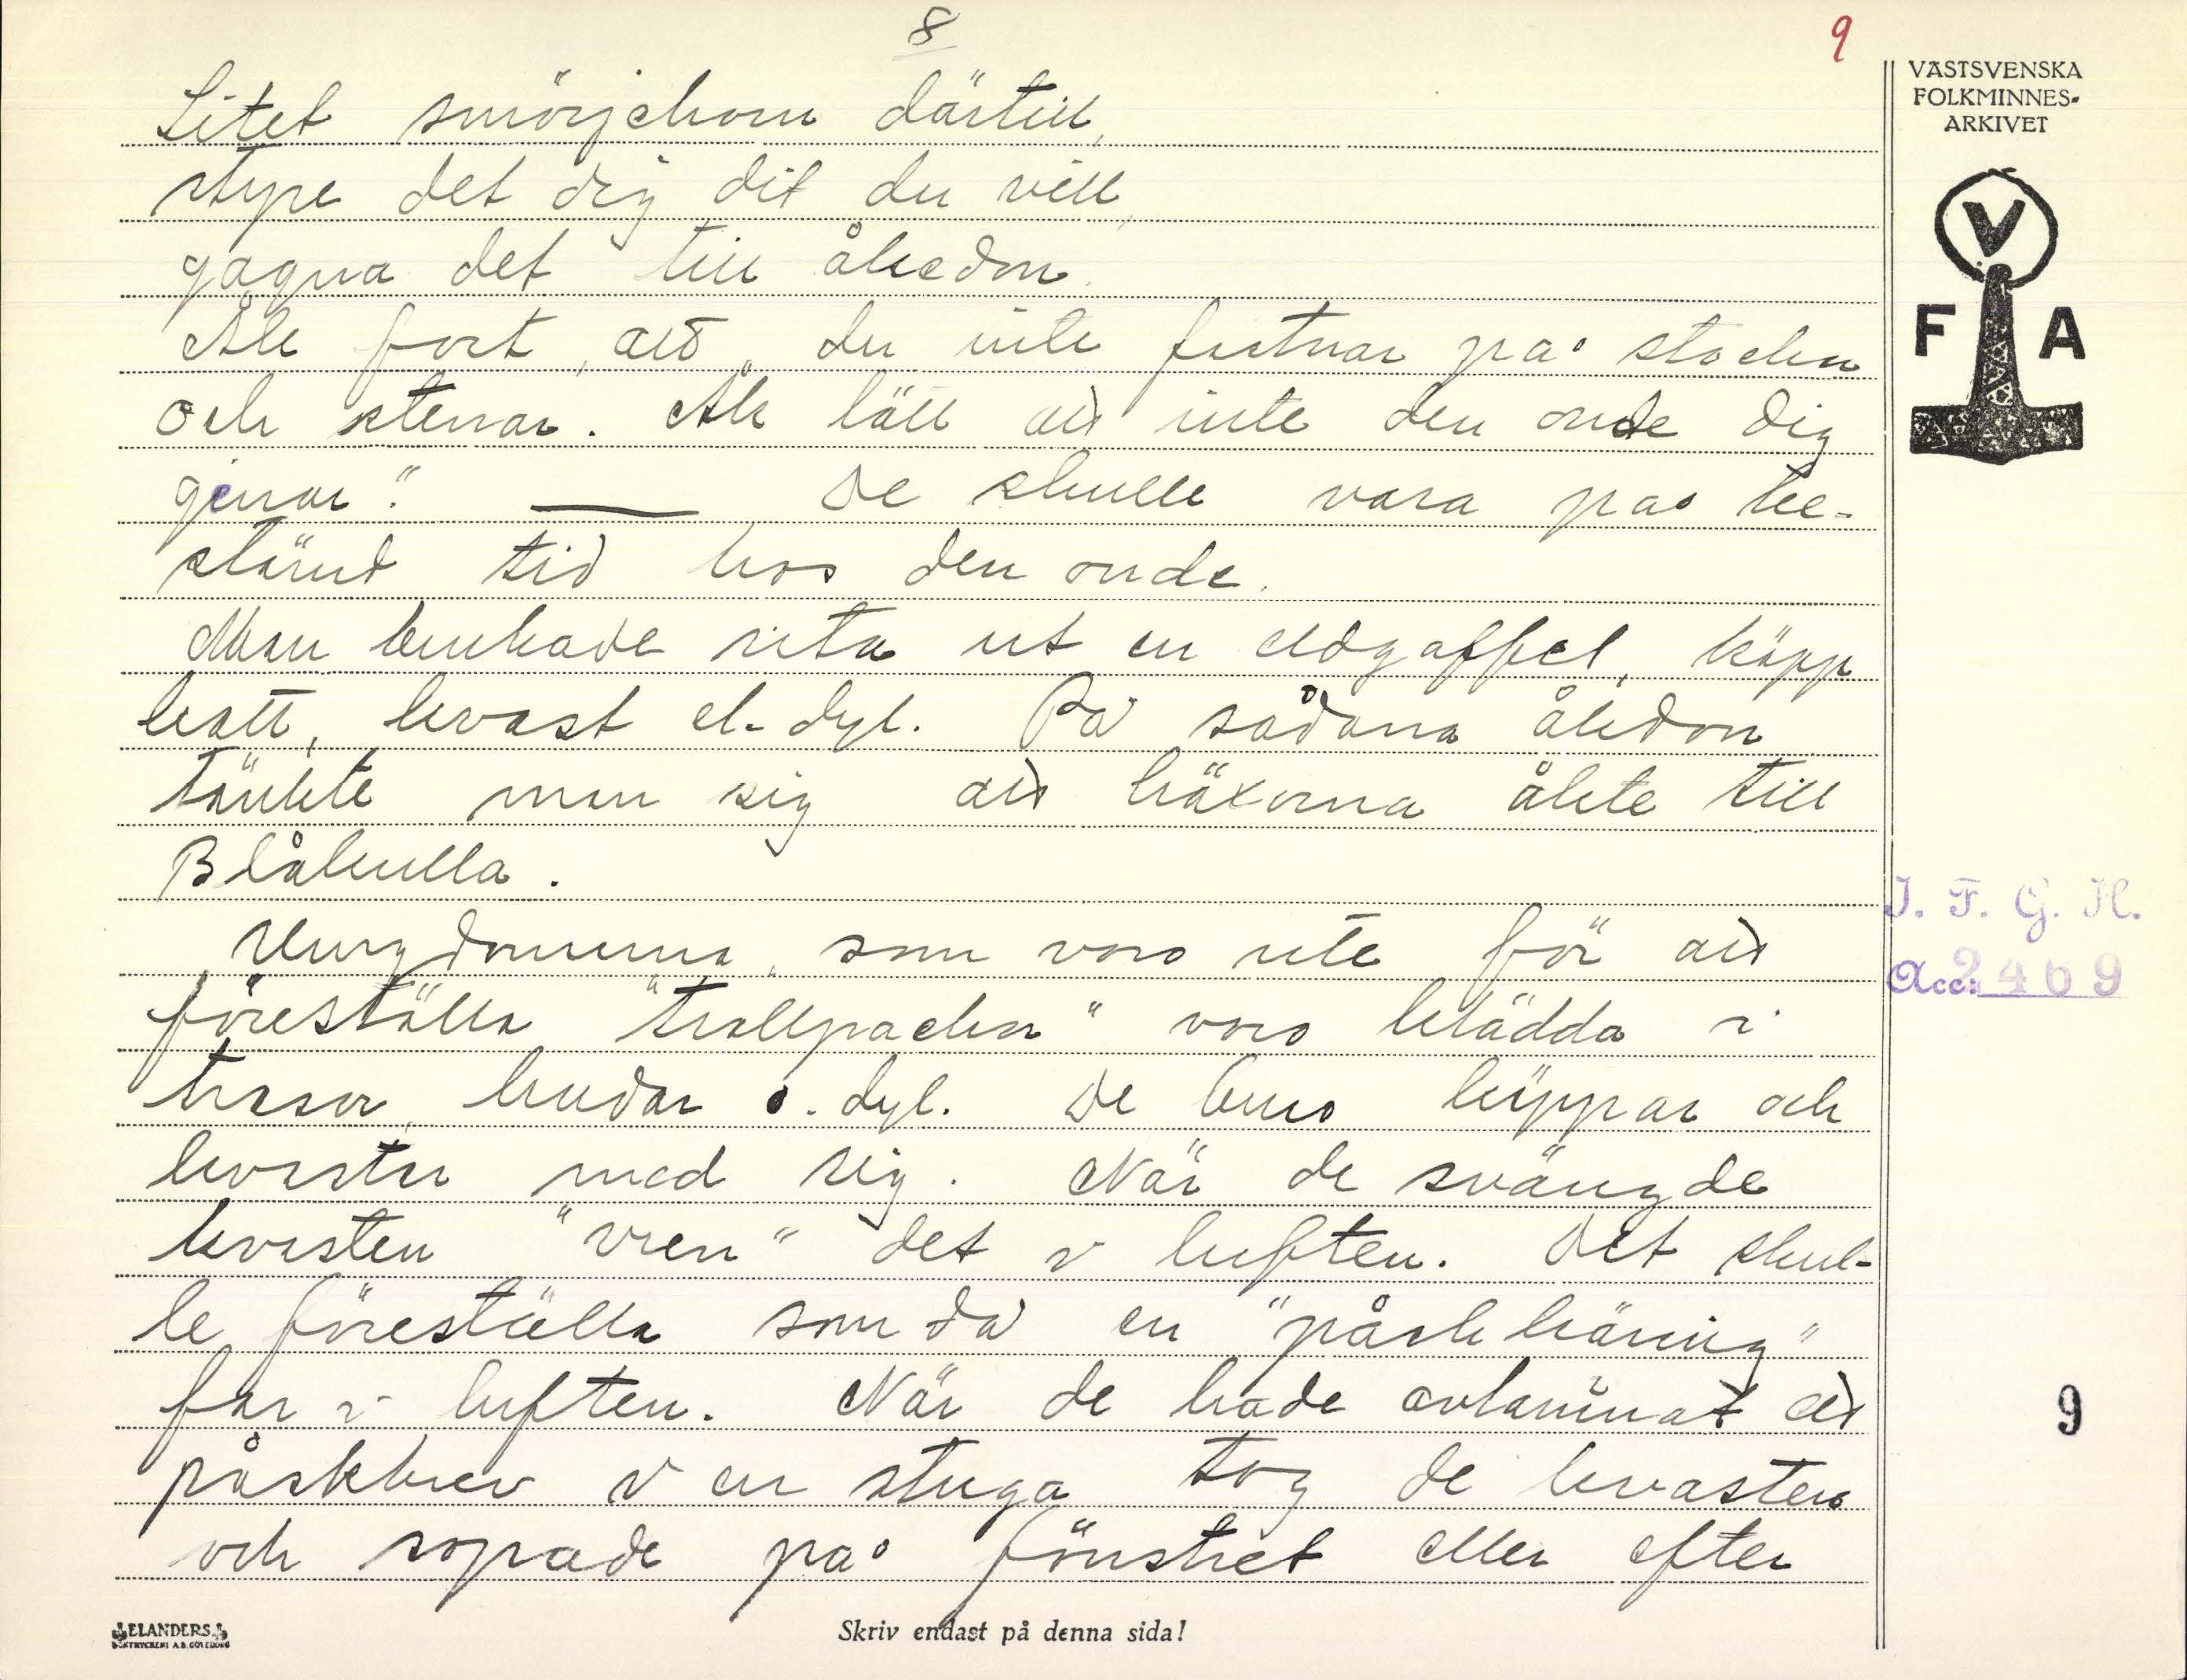 8
9
VÄSTSVENSKA
FOLKMINNES-
ARKIVET
V
F A
Litet smörjehorn därtill,
styre det dig dit du vill,
gagna det till åkedon.
Åk fort, att du inte fastnar på stockar
och stenar. Åk lätt att inte den onde dig
genar." — De skulle vara på be-
stämd tid hos den onde.
Man brukade rita ut en eldgaffel, käpp
katt, kvast el. dyl. På sådana åkedon
tänkte man sig att häxorna åkte till
Blåkulla.
Ungdomarna, som voro ute för att
föreställa "trollpackor" voro klädda i
trasor, hudar o. dyl. De buro käppar och
kvastar med sig. När de svängde
kvasten "vren" det i luften. Det skul-
le föreställa som då en "påskkäring"
far i luften. När de hade avlämnat ett
påskbrev i en stuga tog de kvasten
och sopade på fönstret eller efter
J. F. G. H.
Acc: 2469
9
ELANDERS
BOKTRYCKERI A.B. GÖTEBORG
Skriv endast på denna sida!